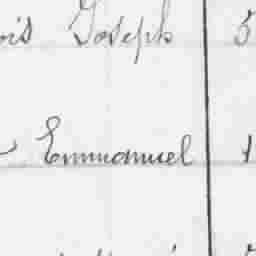 ois Joseph 5
Emmanuel 1